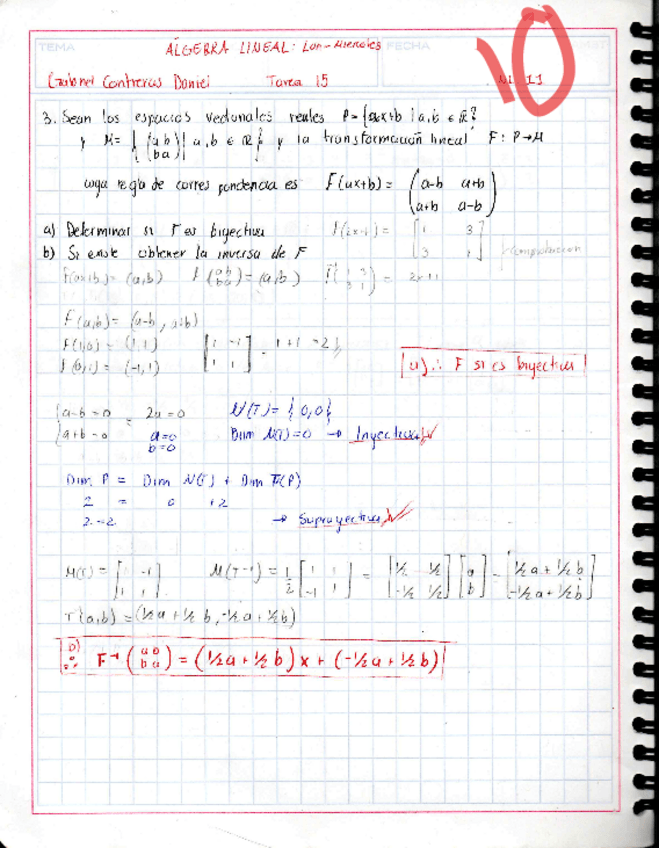 TEMA
ALGEBRA LINEAL: Lun-Miercoles
FECHA
10
Gabriel Contreras Daniel Tarea 15
3. Sean los espacios vectoriales reales P={ax+b | a,b ∈ R}
y M= { (a b / b a) | a,b ∈ R } y la transformación lineal F: P→M
cuya regla de correspondencia es F(ax+b) = (a-b a+b / a+b a-b)
a) Determinar si F es biyectiva
b) Si existe obtener la inversa de F
f(2x+1) = [1 3 / 3 1] } comprobacion
f(ax+b) = (a,b) f(a b / b a) = (a,b) f⁻¹(1 3 / 3 1) = 2x+1
F(a,b) = (a-b, a+b)
f(1,0) = (1,1)
f(0,1) = (-1,1)
[1 -1 / 1 1] = 1+1=2
a) ∴ F si es biyectiva
{a-b=0 = 2a=0 N(T) = {0,0}
{a+b=0 a=0 Dim N(T)=0 → Inyectiva
b=0
Dim P = Dim N(T) + Dim T(P)
2 = 0 +2
2=2 → Suprayectiva
M(T) = [1 -1 / 1 1] M(T-1) = 1/2 [1 1 / -1 1] = [1/2 1/2 / -1/2 1/2] [a / b] = [1/2a + 1/2b / -1/2a + 1/2b]
T(a,b) = (1/2a + 1/2b, -1/2a + 1/2b)
b) ∴ F⁻¹ (a b / b a) = (1/2a + 1/2b)x + (-1/2a + 1/2b)